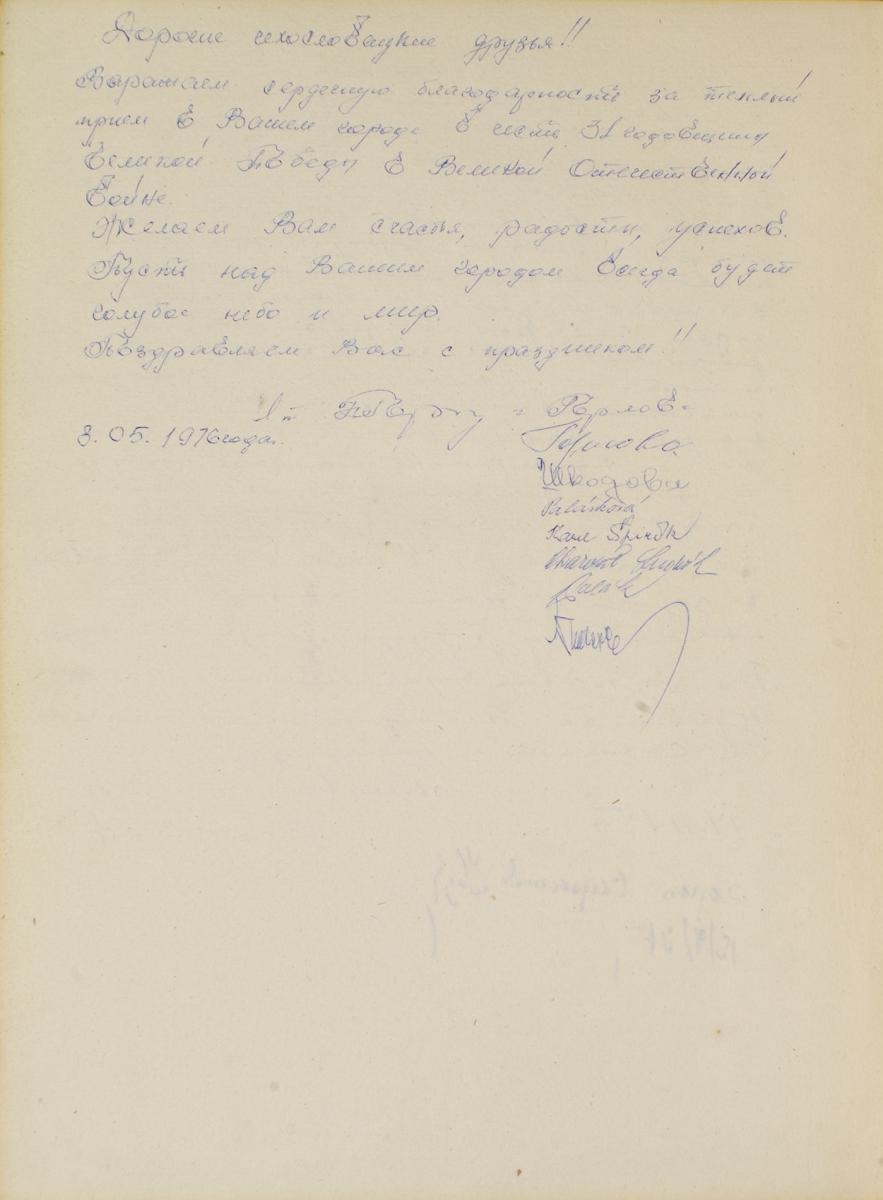 Дорогие чехословацкие друзья!!
Выражаем сердечную благодарность за теплый
прием в Вашем городе в честь 31 годовщины
Великой Победы в Великой Отечественной
войне.
Желаем Вам счастья, радости, успехов.
Пусть над Вашим городом всегда будет
голубое небо и мир.
Поздравляем Вас с праздником!!
3.05.1976 года.
Karel